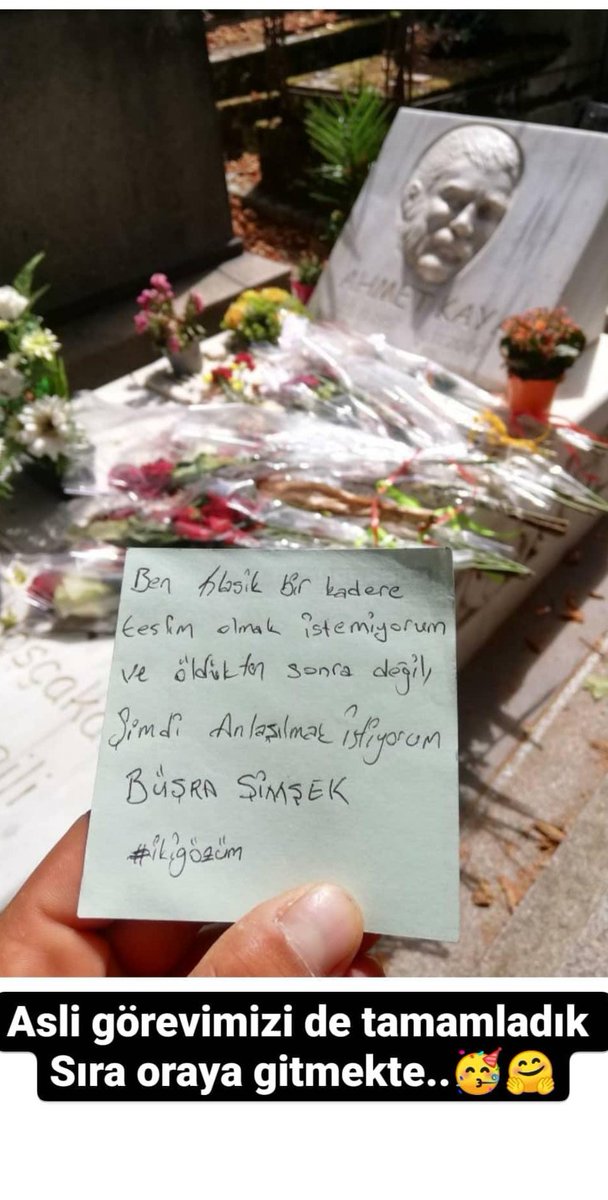 AHMET KAYA
Ben klasik bir kadere
teslim olmak istemiyorum
ve öldükten sonra değil,
Şimdi Anlaşılmak İstiyorum
BÜŞRA ŞİMŞEK
#ikigözüm
Asli görevimizi de tamamladık
Sıra oraya gitmekte..🥳🤗